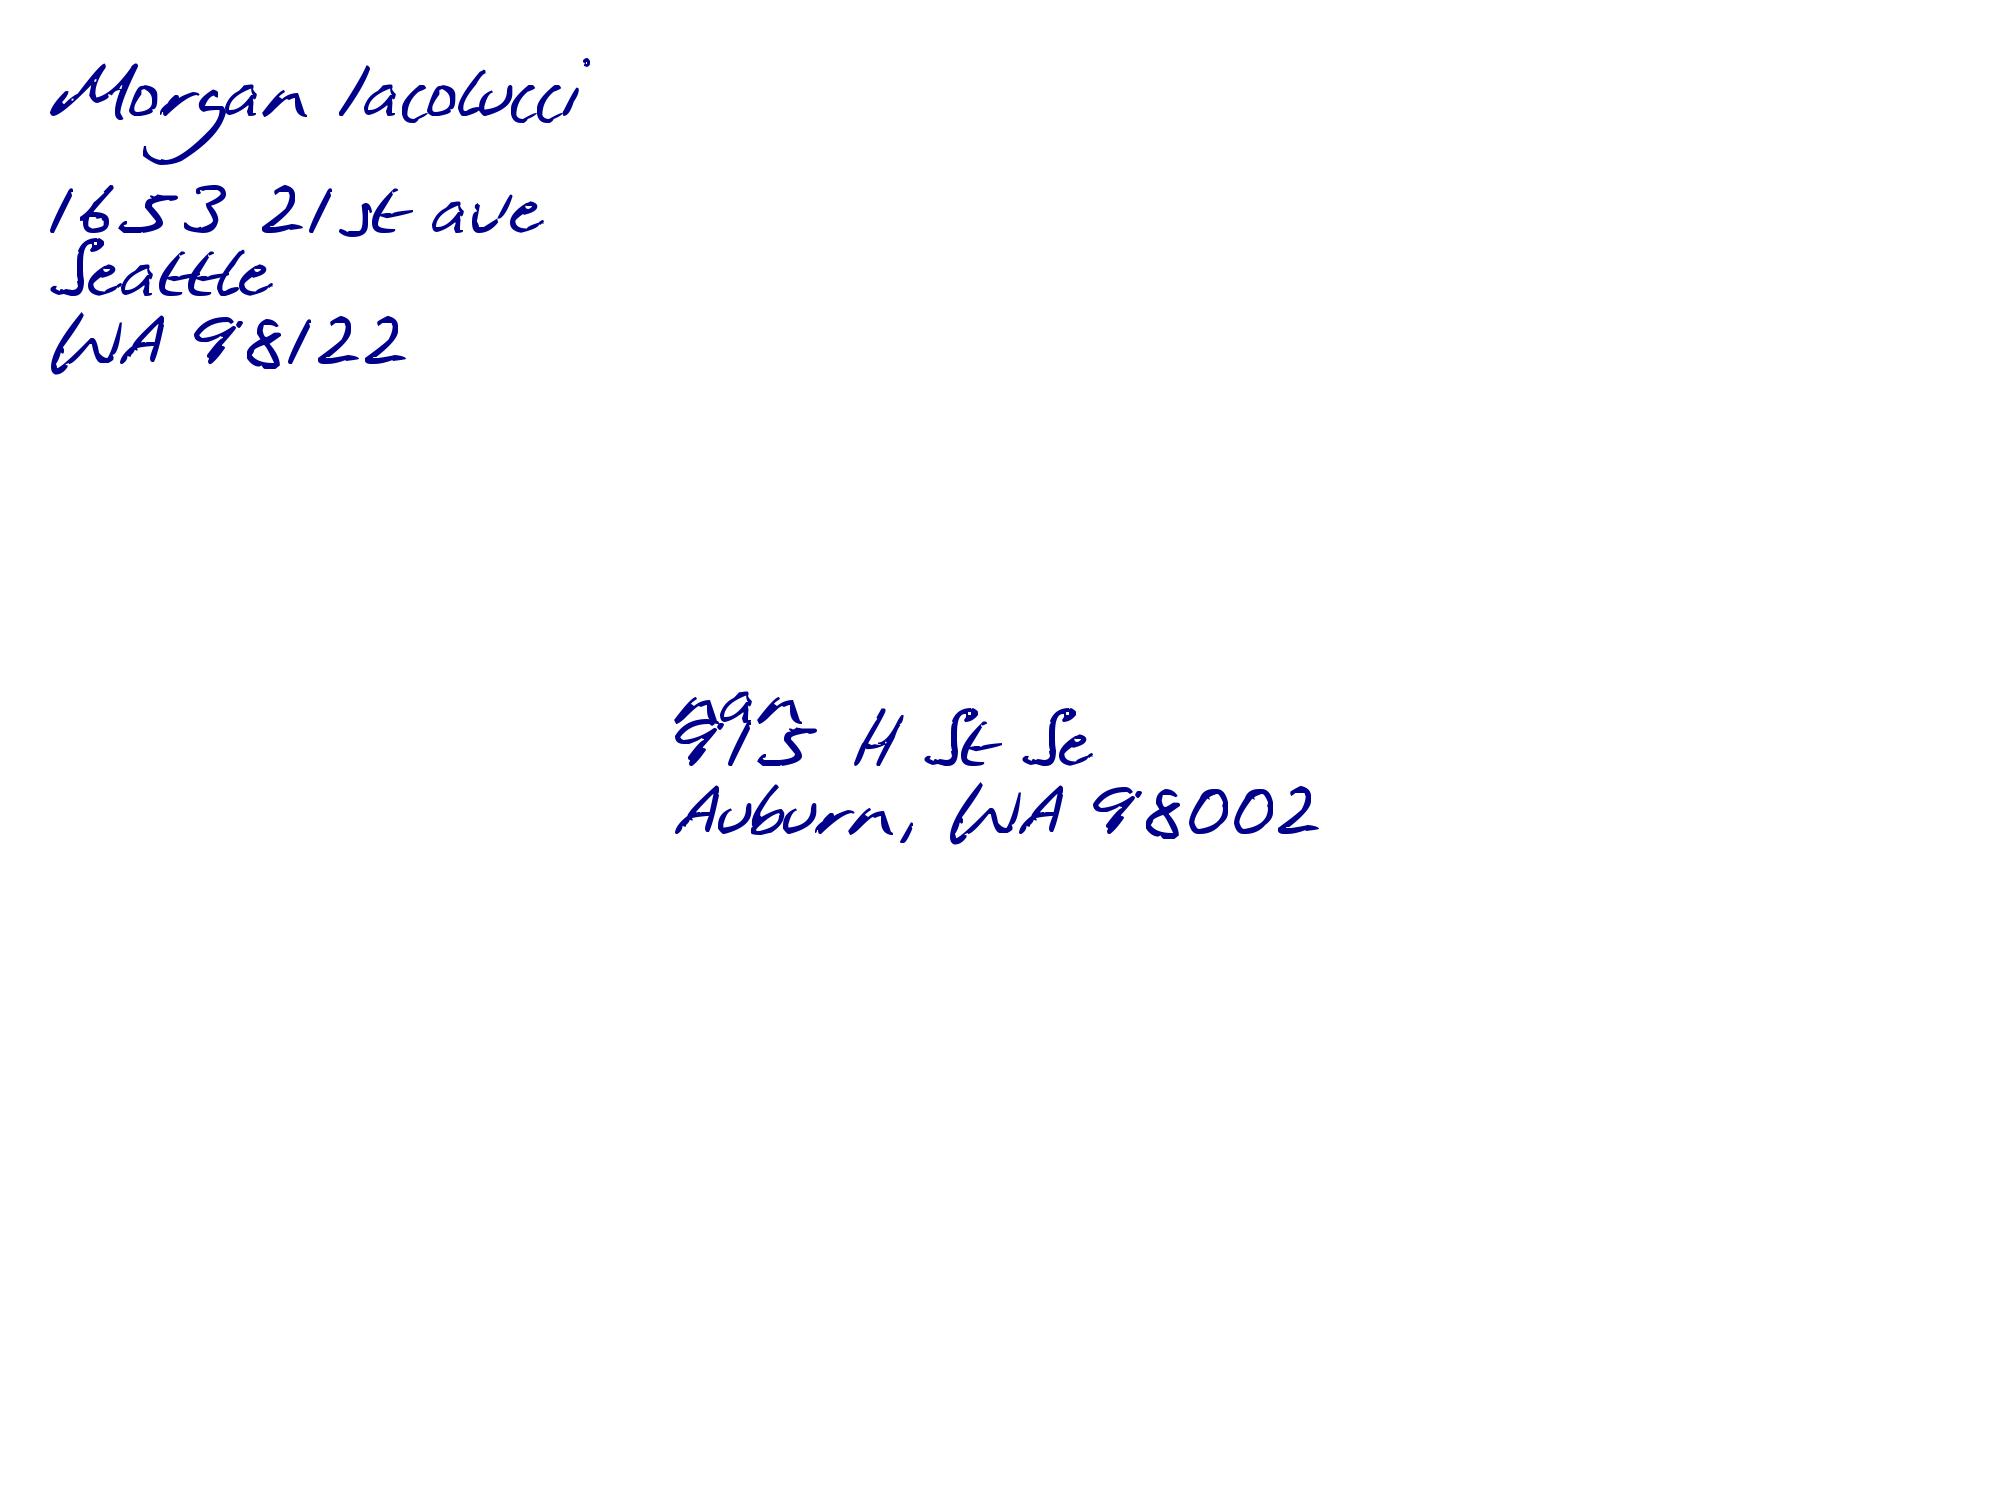 Morgan Iacolucci
1653 21st ave
Seattle
WA 98122
nan
915 H St Se
Auburn, WA 98002